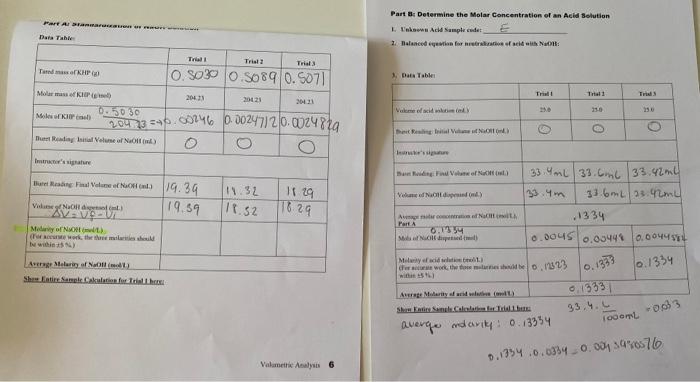 Part A: Standardization of NaOH
Data Table:
Trial 1 Trial 2 Trial 3
Tared mass of KHP (g) 0.5030 0.5089 0.5071
Molar mass of KHP (g/mol) 204.23 204.23 204.23
0.5030
Moles of KHP (mol) 204.23 = 0.00246 0.0024712 0.0024829
Buret Reading: Initial Volume of NaOH (mL) 0 0 0
Instructor's signature
Buret Reading: Final Volume of NaOH (mL) 19.39 18.32 18.29
Volume of NaOH dispensed (mL) 19.39 18.32 18.29
ΔV = Vf - Vi
Molarity of NaOH (mol/L)
(For accurate work, the three molarities should
be within ±5 %)
Average Molarity of NaOH (mol/L)
Show Entire Sample Calculation for Trial 1 here:
Volumetric Analysis 6
Part B: Determine the Molar Concentration of an Acid Solution
1. Unknown Acid Sample code: E
2. Balanced equation for neutralization of acid with NaOH:
3. Data Table:
Trial 1 Trial 2 Trial 3
Volume of acid solution (mL) 25.0 25.0 25.0
Buret Reading: Initial Volume of NaOH (mL) 0 0 0
Instructor's signature
Buret Reading: Final Volume of NaOH (mL) 33.4mL 33.6mL 33.42mL
Volume of NaOH dispensed (mL) 33.4m 33.6mL 33.42mL
Average molar concentration of NaOH (mol/L), .1334
Part A
0.1334
Mols of NaOH dispensed (mol) 0.0045 0.00448
Molarity of acid solution (mol/L)
(For accurate work, the three molarities should be 0.1333 0.1334
within ±5 %)
Average Molarity of acid solution (mol/L) 0.1333
Show Entire Sample Calculation for Trial 1 here:
33.4
1000mL
average molarity: 0.13334
0.1334 . 0.0334 =